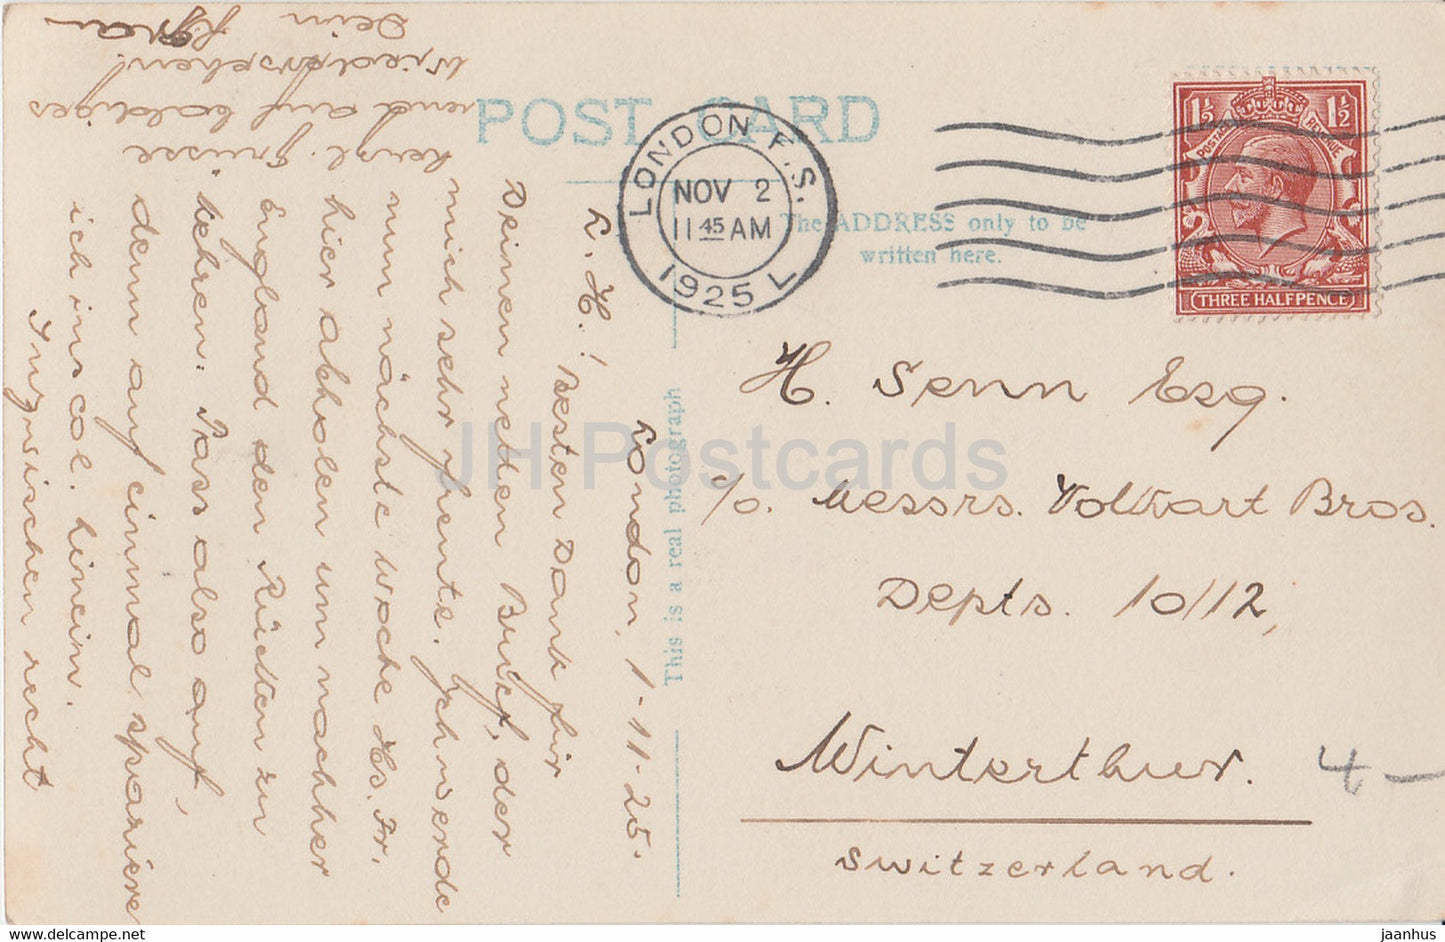 POST CARD
The ADDRESS only to be
written here.
This is a real photograph
LONDON F.S.
NOV 2
11 45 AM
1925 L
1½ 1½
POSTAGE REVENUE
THREE HALFPENCE
London, 1-11-25.
L. H.! Besten Dank für
Deinen netten Brief, der
mich sehr freute. Ich werde
nun nächste Woche Hs. Fr.
hier abholen um nachher
England den Rücken zu
kehren. Pass also auf,
denn auf einmal spaziere
ich ins col. hinein.
Inzwischen recht
herzl. Grüsse
und auf baldiges
Wiedersehen!
Dein
H. Senn Esq.
c/o. Messrs. Volkart Bros.
Depts. 10/12,
Winterthur.
Switzerland.
4-
JH Postcards
www.delcampe.net
jaanhus